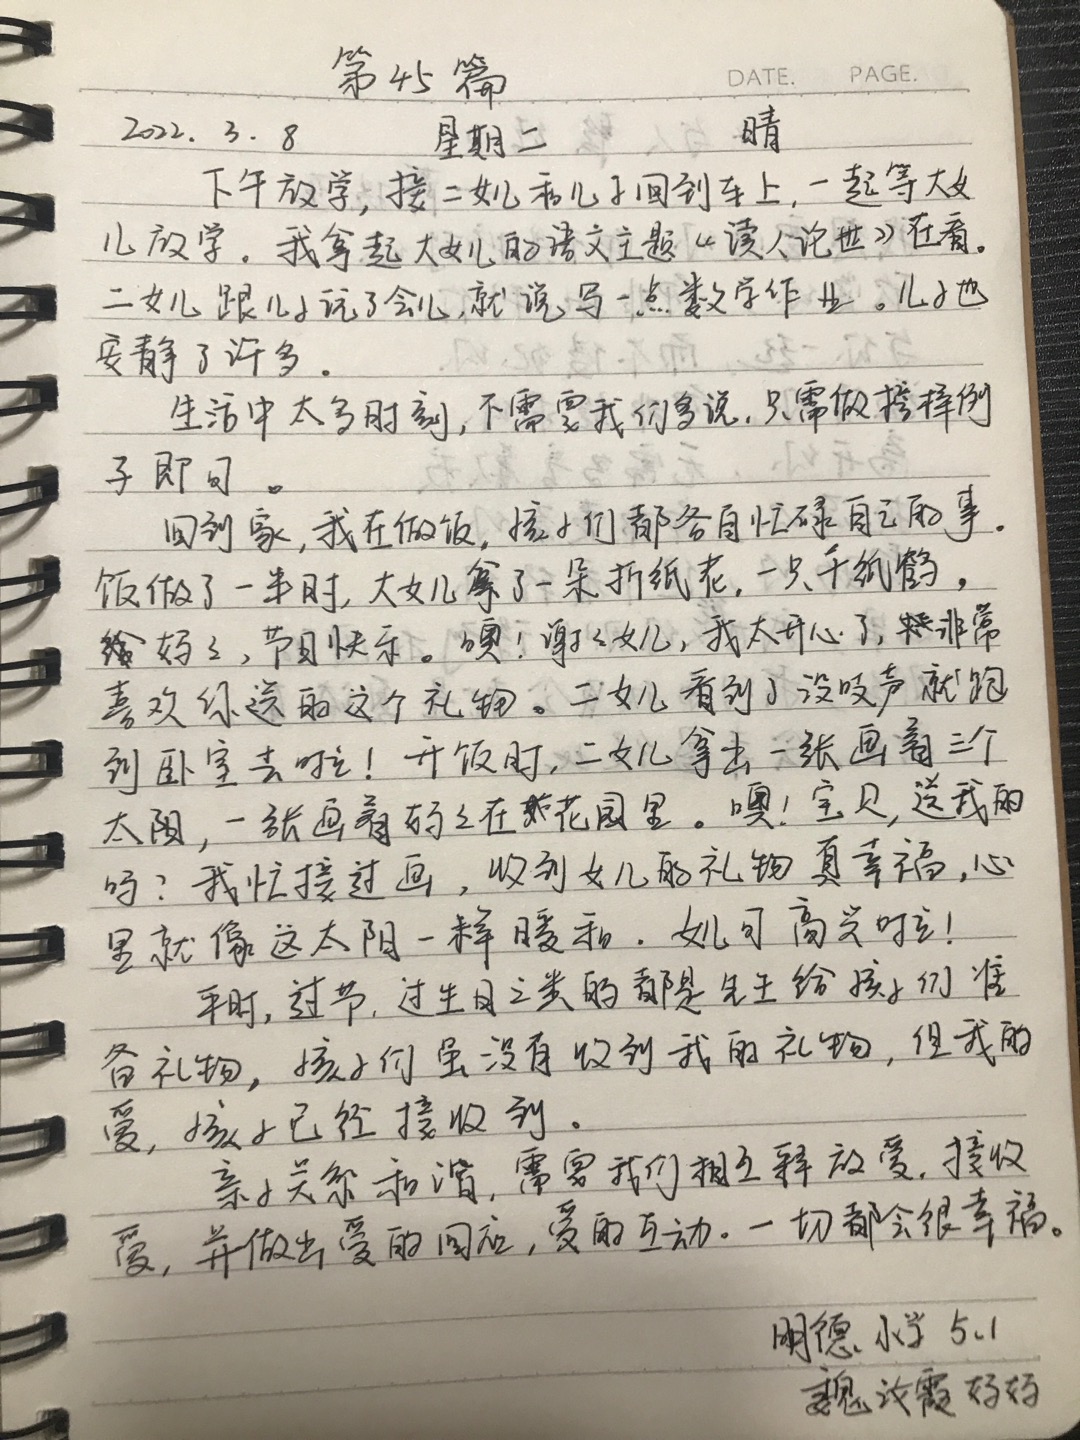 第45篇
DATE. PAGE.
2022.3.8 星期二 晴
下午放学,接二女儿和儿子回到车上,一起等大女
儿放学。我拿起大女儿的语文主题《读人论世》在看。
二女儿跟儿子说了会儿,就说写一点数学作业。儿子也
安静了许多。
生活中太多时刻,不需要我们多说,只需做榜样例
子即可。
回到家,我在做饭,孩子们都各自忙碌自己的事。
饭做了一半时,大女儿拿了一朵折纸花,一只千纸鹤,
给妈妈,节日快乐。噢!谢谢女儿,我太开心了,非常
喜欢你送的这个礼物。二女儿看到了没吱声就跑
到卧室去啦!开饭时,二女儿拿出一张画着三个
太阳,一张画着妈妈在花园里。噢!宝贝,送我的
吗?我忙接过画,收到女儿的礼物真幸福,心
里就像这太阳一样暖和.女儿可高兴啦!
平时,过节,过生日之类的都是先生给孩子们准
备礼物,孩子们虽没有收到我的礼物,但我的
爱,孩子已经接收到。
亲子关系和谐,需要我们相互释放爱,接收
爱,并做出爱的回应,爱的互动。一切都会很幸福。
明德小学5.1
魏 霞妈妈